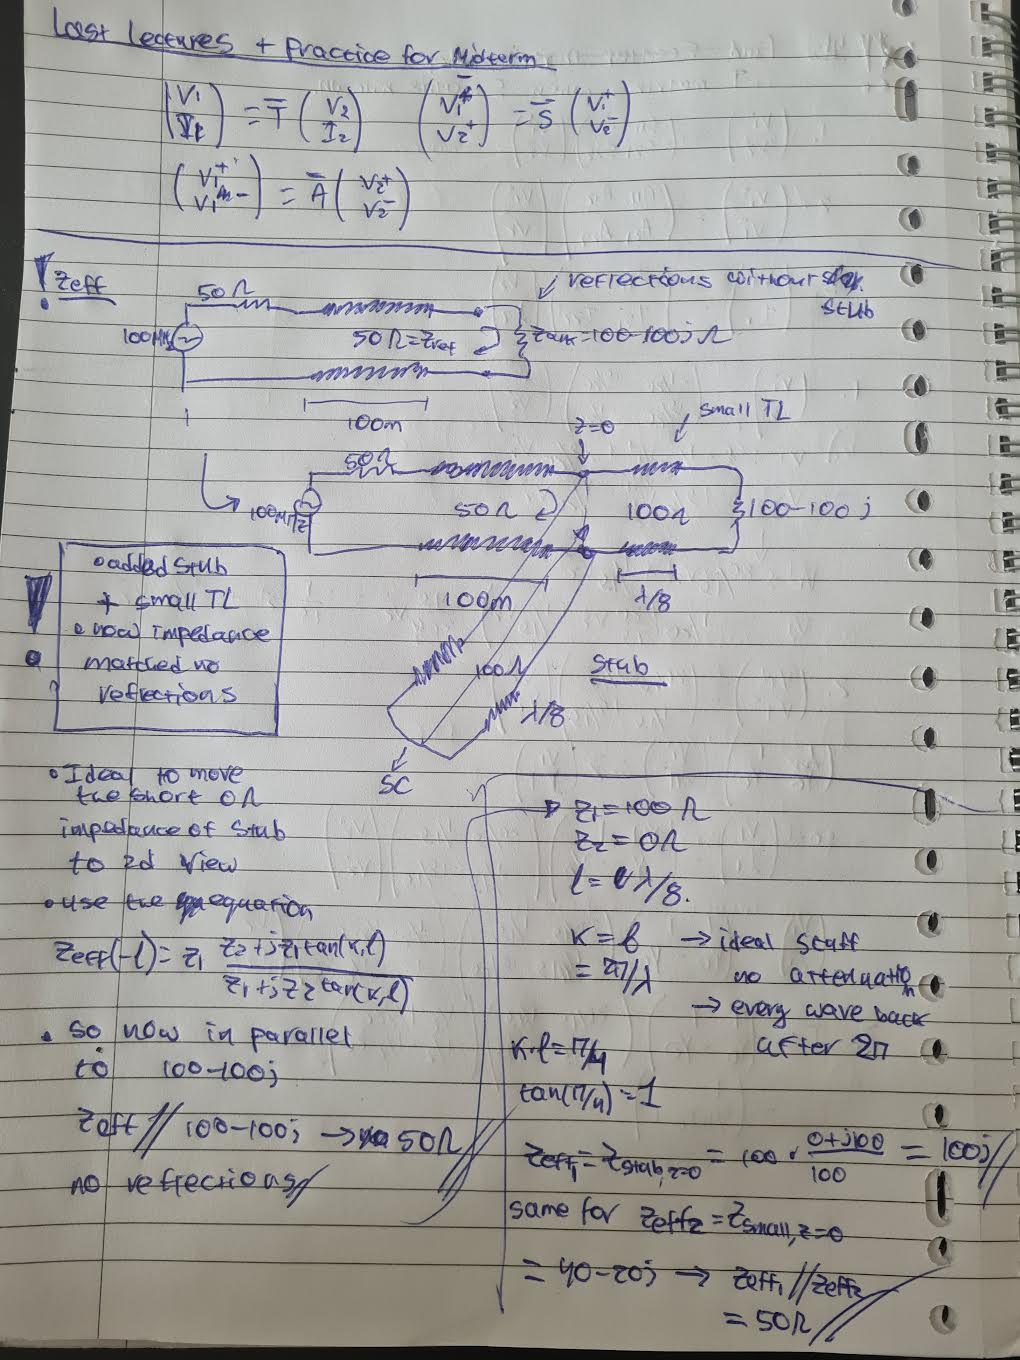 Last Lectures + Practice for Midterm
(V1 I1) = T̄ (V2 I2) (V1⁻ V2⁺) = S̄ (V1⁺ V2⁻)
(V1⁺ V1⁻) = Ā (V2⁺ V2⁻)
! Zeff
50Ω
reflections without
stub
100MHz
50Ω=Zref
=100-100jΩ
100m
small TL
z=0
50Ω
100MHz
50Ω
100Ω
100-100j
100m
λ/8
100Ω
Stub
λ/8
SC
!
• added Stub
+ small TL
• now impedance
matched no
reflections
• Ideal to move
the short 0Ω
impedance of stub
to 2d view
• use the equation
Zeff(-l) = Z1 (Z2+jZ1tan(κ,l))/(Z1+jZ2tan(κ,l))
• so now in parallel
to 100-100j
Zeff // 100-100j → 50Ω
no reflections //
Z1=100Ω
Z2=0Ω
l= λ/8.
κ=β → ideal stuff
= 2π/λ no attenuation
→ every wave back
after 2π
κ·l=π/4
tan(π/4)=1
Zeff1=Zstub,z=0 = 100 · (0+j100)/100 = 100j //
same for Zeff2=Zsmall,z=0
= 40-20j → Zeff1 // Zeff2
= 50Ω //